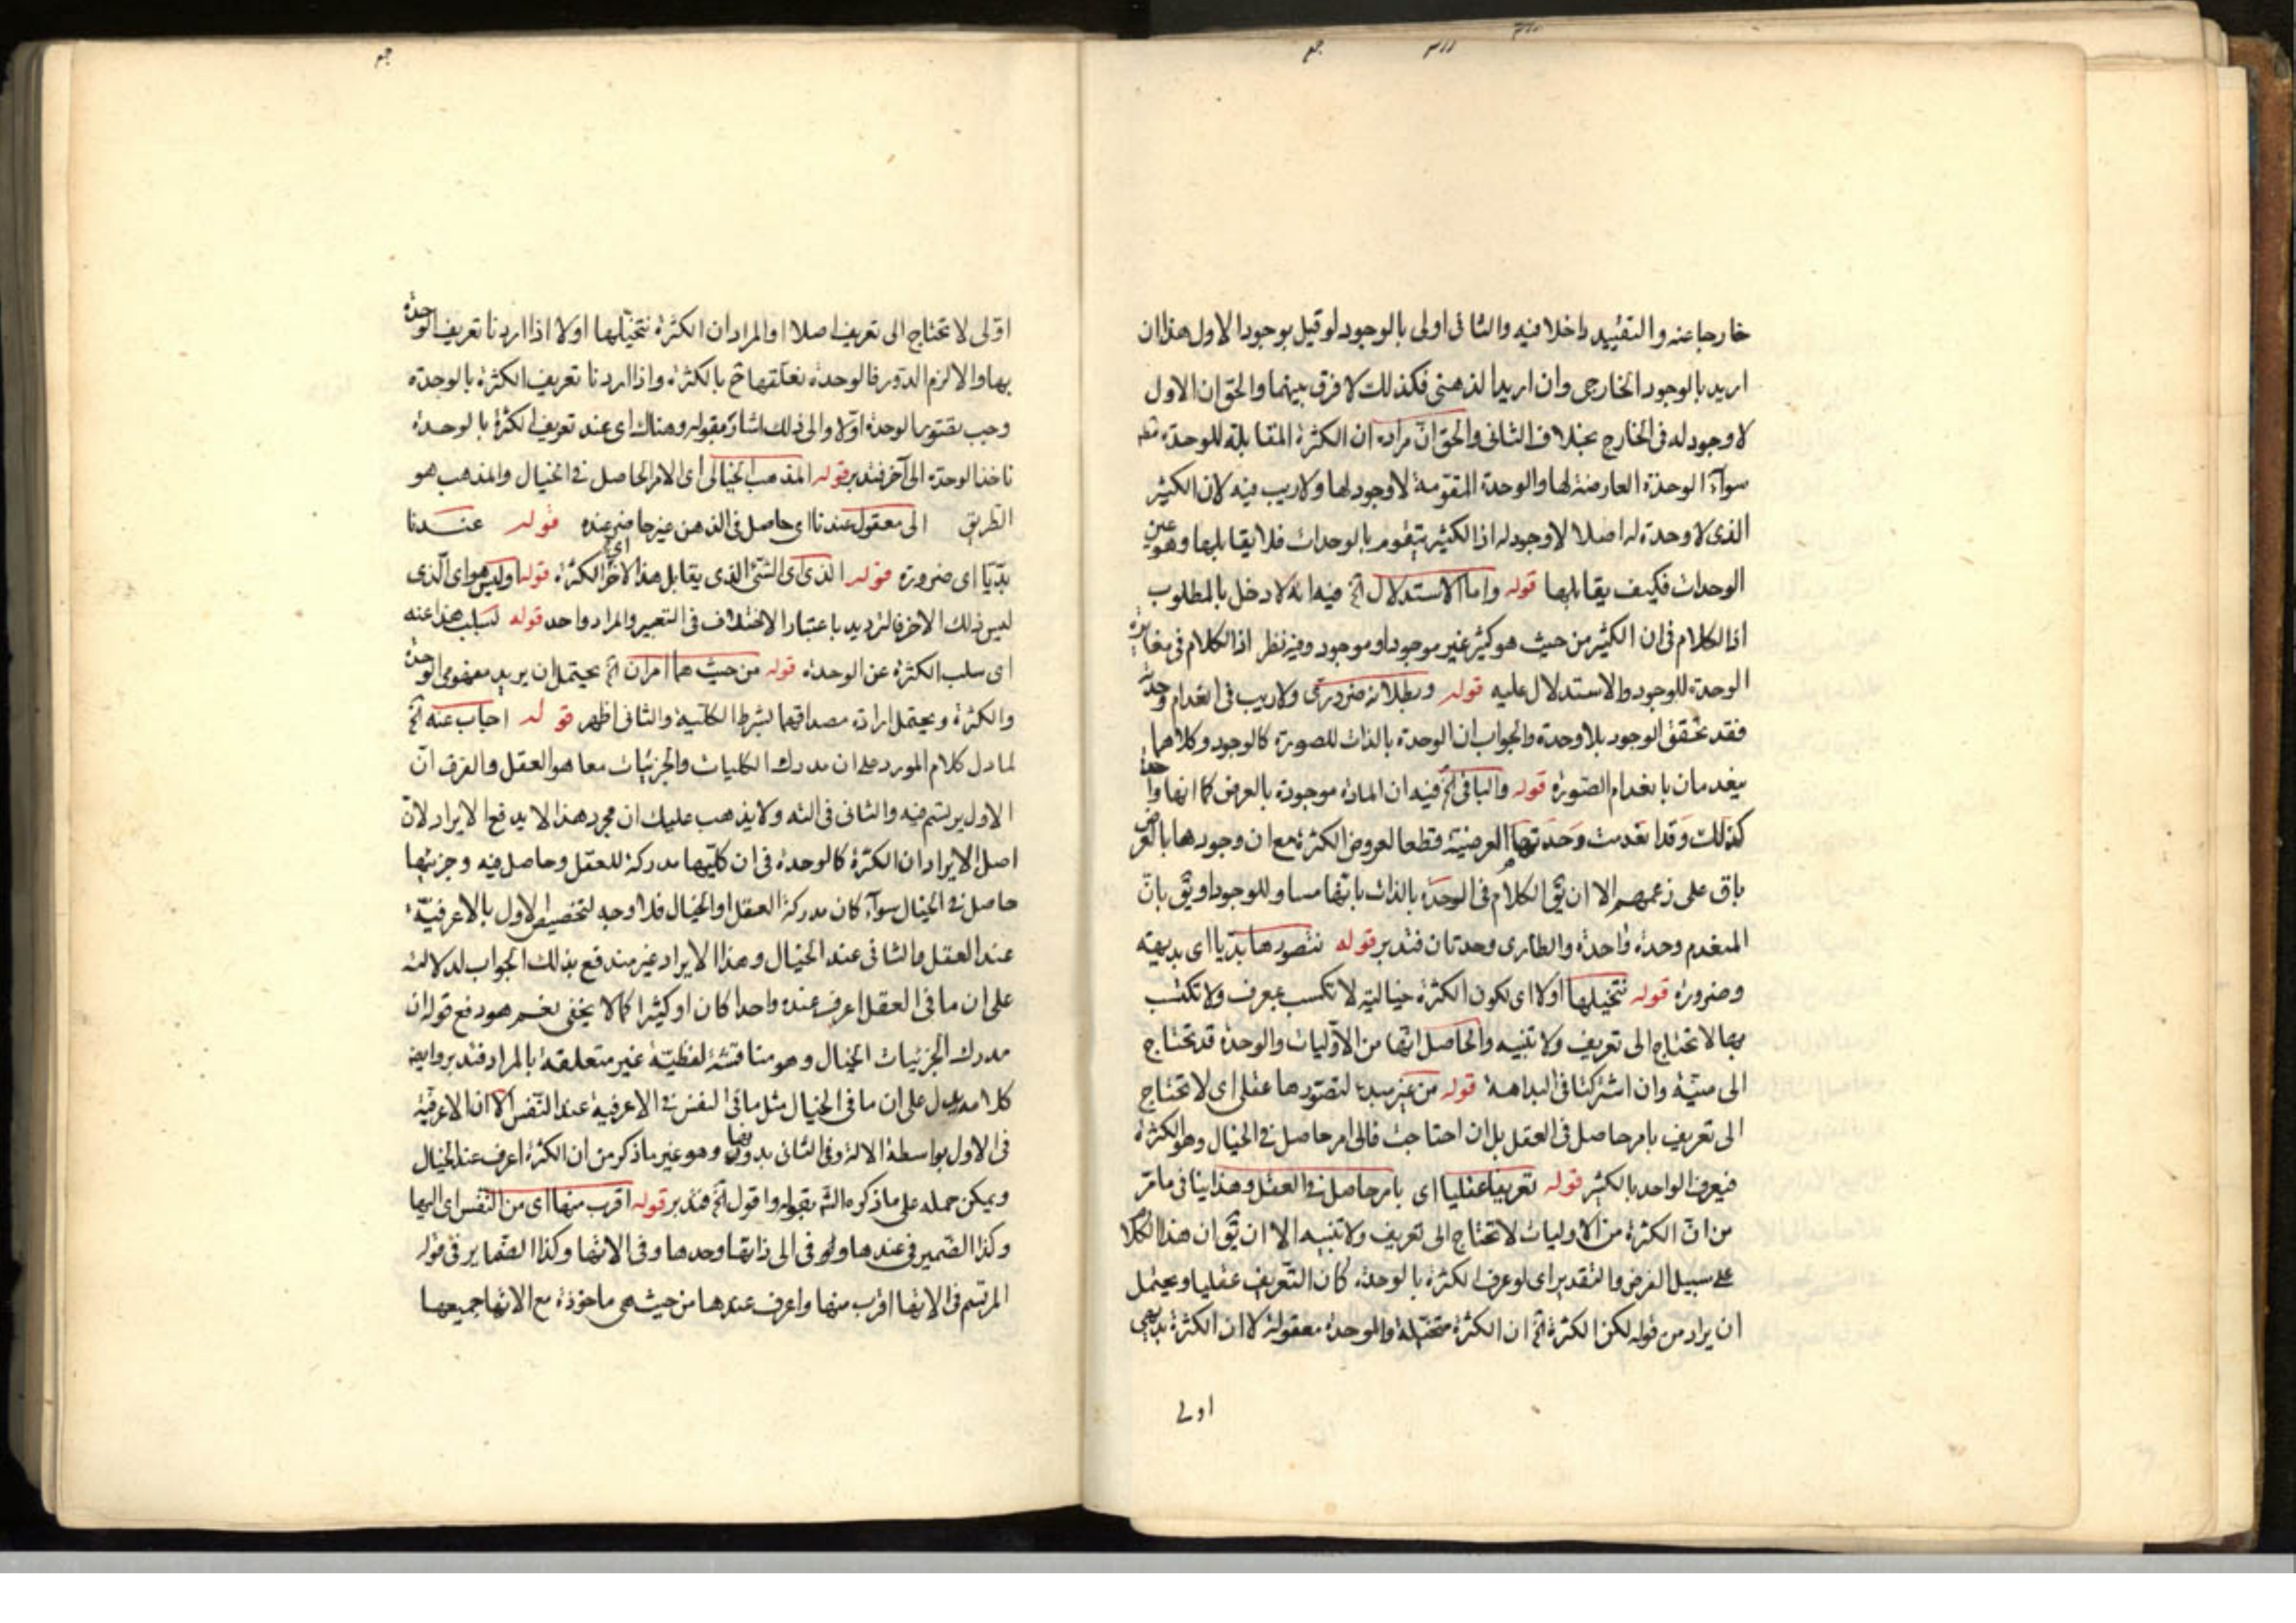 خارجا عنه والتقييد داخلا فيه والثانى اولى بالوجود لو قيل بوجود الاول هذا ان
اريد بالوجود الخارجى وان اريد الذهنى فكذلك لا فرق بينهما والحق ان الاول
لا وجود له فى الخارج بخلاف الثانى والحق ان مراده ان الكثرة المقابلة للوحدة
سوآء الوحدة العارضة لها والوحدة المقومة لا وجود لها ولا ريب فيه لان الكثير
الذى لا وحدة له اصلا لا وجود له اذ الكثير يتقوم بالوحدات فلا يقابلها وهو عين
الوحدات فكيف يقابلها قوله واما الاستدلال الخ فيه انه لا دخل بالمطلوب
اذ الكلام فى ان الكثير من حيث هو كثير غير موجود او موجود وفيه نظر اذ الكلام فى مغايرة
الوحدة للوجود والاستدلال عليه قوله وبطلانه ضرورى ولا ريب فى انعدام وحدته
فقد تحقق الوجود بلا وحدة والجواب ان الوحدة بالذات للصورة كالوجود وكلاهما
ينعدمان بانعدام الصورة قوله والباقى الخ فيه ان المادة موجودة بالعرض كما انها واحدة
كذلك وقد انعدمت وحدتها العرضية قطعا لعروض الكثرة مع ان وجودها بالعرض
باق على زعمهم الا ان يق الكلام فى الوحدة بالذات بانها مساو للوجود او يق بان
المنعدم وحدة واحدة والطارى وحدتان فتدبر قوله نتصورها بديا اى بديهة
وضرورة قوله نتخيلها اولا اى لكون الكثرة خيالية لا تكسب بمعرف ولا تكتسب
مما لا تحتاج الى تعريف ولا تنبيه والحاصل انها من الاوليات والوحدة قد تحتاج
الى منبه وان اشتركتا فى البداهة قوله من غير مبدء لتصورها عقلى اى لا تحتاج
الى تعريف بامر حاصل فى العقل بل ان احتاجت فالى امر حاصل فى الخيال وهو الكثرة
فيعرف الواحد بالكثير قوله تعريفا عقليا اى بامر حاصل فى العقل وهذا ينافى ما مر
من ان الكثرة من الاوليات لا تحتاج الى تعريف ولا تنبيه الا ان يق ان هذا الكلام
على سبيل الفرض والتقدير اى لو عرف الكثرة بالوحدة كان التعريف عقليا ويحتمل
ان يراد من قوله لكن الكثرة الخ ان الكثرة متخيلة والوحدة معقولة لا ان الكثرة بديهى
اولى
اولى لا تحتاج الى تعريف اصلا او المراد ان الكثرة نتخيلها اولا اذا اردنا تعريف الوحدة
بها والا لزم الدور فالوحدة نعلقها ثم بالكثرة واذا اردنا تعريف الكثرة بالوحدة
وجب بتصور الوحدة اولا والى ذلك اشار بقوله وهناك اى عند تعريف الكثرة بالوحدة
ناخذ الوحدة الى آخر فتدبر قوله المذهب الخيالى اى الامر الحاصل فى الخيال والمذهب هو
الطريق الى معقول عندنا اى حاصل فى الذهن غير حاضر عنده قوله عندنا
بديا اى ضرورة قوله الذى اى الشئ الذى يقابل هذا الاخر اى الكثرة قوله او ليس هو اى الذى
ليس ذلك الاخر فالترديد باعتبار الاختلاف فى التعبير والمراد واحد قوله لسلب هذا عنه
اى سلب الكثرة عن الوحدة قوله من حيث هما امران الخ يحتمل ان يريد مفهومى الوحدة
والكثرة ويحتمل ارادة مصداقهما بشرط الكلية والثانى اظهر قوله اجاب عنه الخ
لما دل كلام المورد على ان مدرك الكليات والجزئيات معا هو العقل والفرق ان
الاول يرتسم فيه والثانى فى الته ولا يذهب عليك ان مجرد هذا لا يدفع الايراد لان
اصل الايراد ان الكثرة كالوحدة فى ان كليها مدركة للعقل وحاصل فيه وجزئيها
حاصل فى الخيال سوآء كان مدركة العقل او الخيال فلا وجه لتخصيص الاول بالاعرفية
عند العقل والثانى عند الخيال وهذا الايراد غير مندفع بذلك الجواب لدلالته
على ان ما فى العقل اعرف عنده واحدا كان او كثيرا كما لا يخفى نعم هو دفع قوله ان
مدرك الجزئيات الخيال وهو مناقشة لفظية غير متعلقة بالمراد فتدبر وايضا
كلامه يدل على ان ما فى الخيال مثل ما فى النفس فى الاعرفية عند النفس الا ان الاعرفية
فى الاول بواسطة الالة وفى الثانى بدونها وهو غير ما ذكر من ان الكثرة اعرف عند الخيال
ويمكن حمله على ما ذكره الشم بقوله واقول الخ فتدبر قوله اقرب منها اى من النفس اى اليها
وكذا الضمير فى عندها وله فى الى ذاتها وحدها وفى الاتها وكذا الضماير فى قوله
المرتسم فى الاتها اقرب منها واعرف عندها من حيث هى ماخوذة مع الاتها جميعها